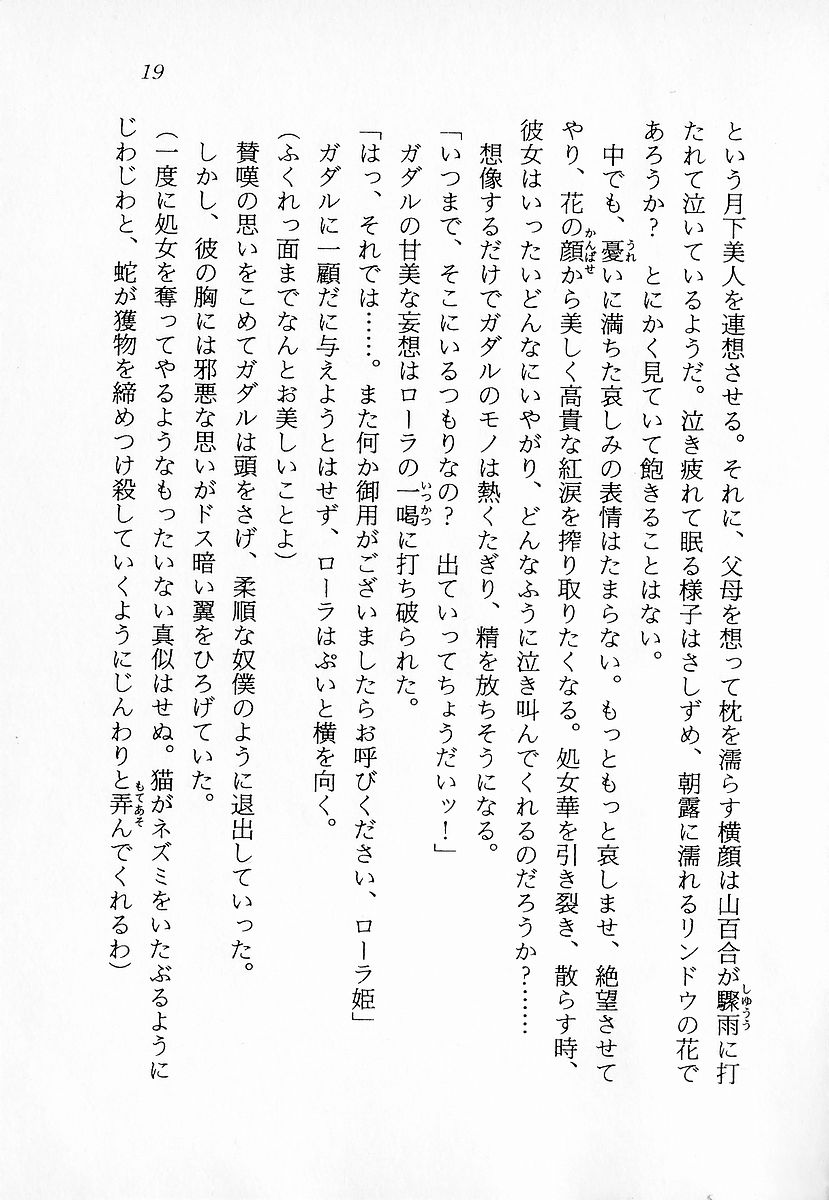 19
という月下美人を連想させる。それに、父母を想って枕を濡らす横顔は山百合が驟雨に打
たれて泣いているようだ。泣き疲れて眠る様子はさしずめ、朝露に濡れるリンドウの花で
あろうか？　とにかく見ていて飽きることはない。
中でも、憂いに満ちた哀しみの表情はたまらない。もっともっと哀しませ、絶望させて
やり、花の顔から美しく高貴な紅涙を搾り取りたくなる。処女華を引き裂き、散らす時、
彼女はいったいどんなにいやがり、どんなふうに泣き叫んでくれるのだろうか？……
想像するだけでガダルのモノは熱くたぎり、精を放ちそうになる。
「いつまで、そこにいるつもりなの？　出ていってちょうだいッ！」
ガダルの甘美な妄想はローラの一喝に打ち破られた。
「はっ、それでは……。また何か御用がございましたらお呼びください、ローラ姫」
ガダルに一顧だに与えようとはせず、ローラはぷいと横を向く。
（ふくれっ面までなんとお美しいことよ）
賛嘆の思いをこめてガダルは頭をさげ、柔順な奴僕のように退出していった。
しかし、彼の胸には邪悪な思いがドス暗い翼をひろげていた。
（一度に処女を奪ってやるようなもったいない真似はせぬ。猫がネズミをいたぶるように
じわじわと、蛇が獲物を締めつけ殺していくようにじんわりと弄んでくれるわ）